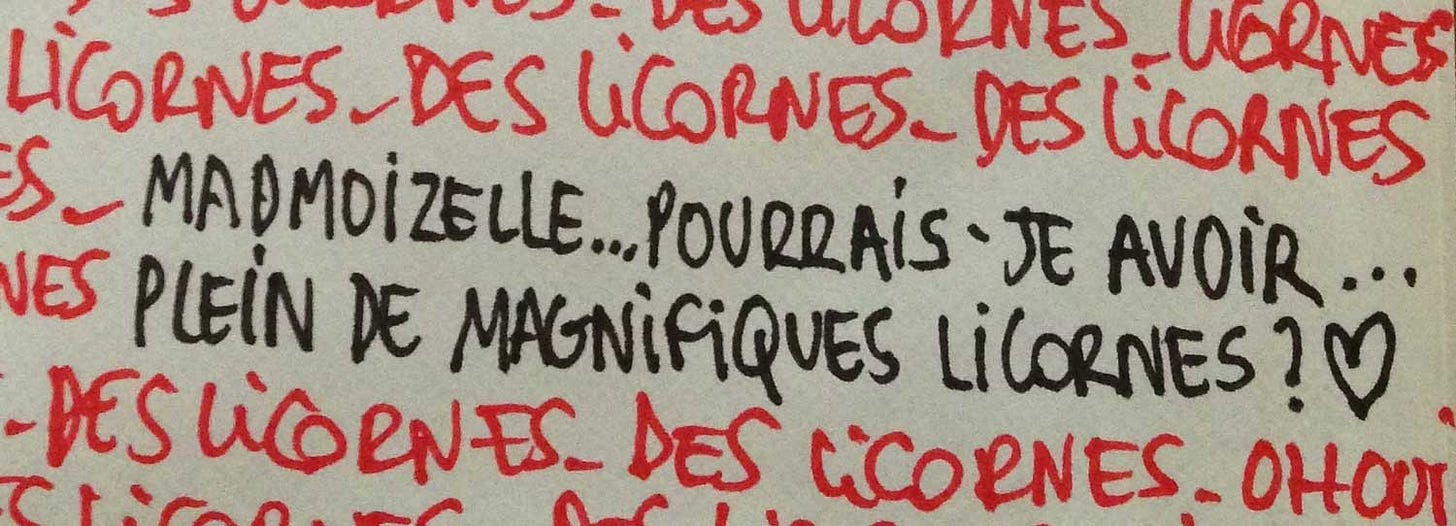 DES LICORNES_LICORNES
LICORNES_DES LICORNES_DES LICORNES
ES_MADMOIZELLE...POURRAIS-JE AVOIR...
NES PLEIN DE MAGNIFIQUES LICORNES?♡
-DES LICORNES_DES LICORNES_OH OUI
LICORNES